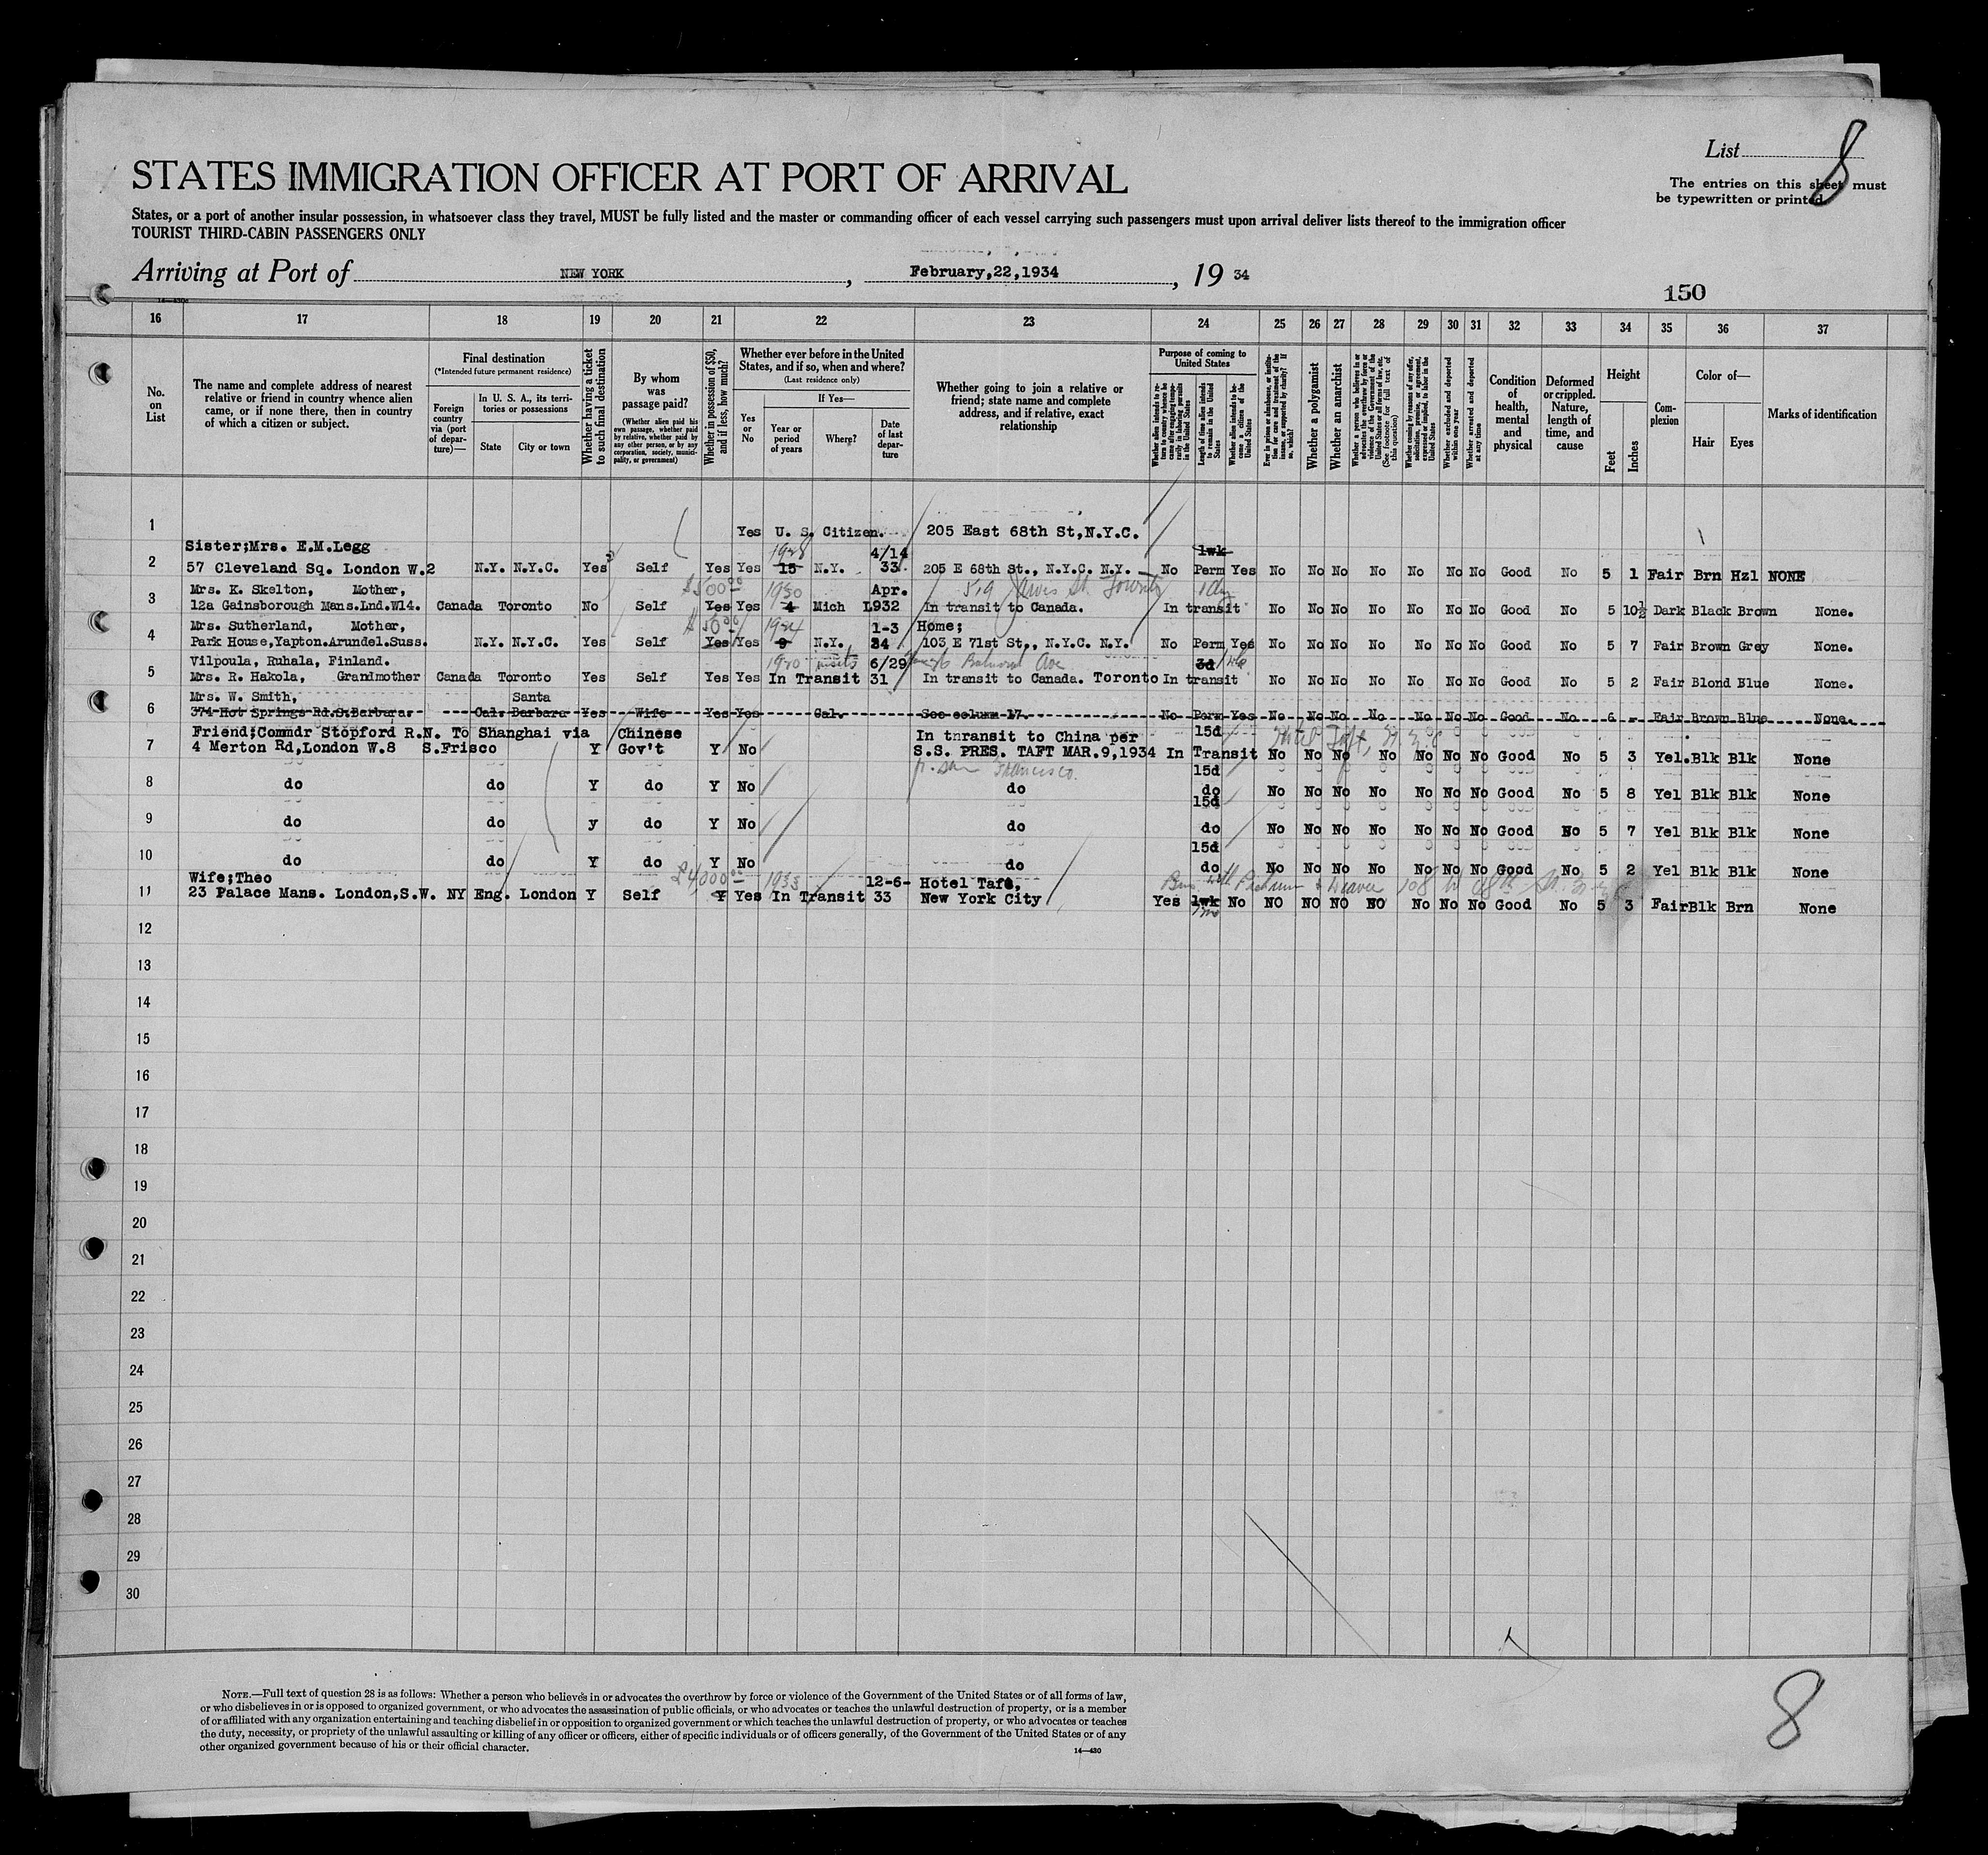 List 8
STATES IMMIGRATION OFFICER AT PORT OF ARRIVAL
The entries on this sheet must
be typewritten or printed.
States, or a port of another insular possession, in whatsoever class they travel, MUST be fully listed and the master or commanding officer of each vessel carrying such passengers must upon arrival deliver lists thereof to the immigration officer
TOURIST THIRD-CABIN PASSENGERS ONLY
Arriving at Port of NEW YORK, February,22,1934, 19 34
150
16 17 18 19 20 21 22 23 24 25 26 27 28 29 30 31 32 33 34 35 36 37
No. on List
The name and complete address of nearest relative or friend in country whence alien came, or if none there, then in country of which a citizen or subject.
Final destination
(*Intended future permanent residence)
Foreign country via (port of departure)—
In U. S. A., its territories or possessions
State
City or town
Whether having a ticket to such final destination
By whom was passage paid?
(Whether alien paid his own passage, whether paid by relative, whether paid by any other person, or by any corporation, society, municipality, or government)
Whether in possession of $50, and if less, how much?
Whether ever before in the United States, and if so, when and where?
(Last residence only)
Yes or No
If Yes—
Year or period of years
Where?
Date of last departure
Whether going to join a relative or friend; state name and complete address, and if relative, exact relationship
Purpose of coming to United States
Whether alien intends to return to country whence he came after engaging temporarily in laboring pursuits in the United States
Length of time alien intends to remain in the United States
Whether alien intends to become a citizen of the United States
Ever in prison or almshouse, or institution for care and treatment of the insane, or supported by charity? If so, which?
Whether a polygamist
Whether an anarchist
Whether a person who believes in or advocates the overthrow by force or violence of the Government of the United States or all forms of law, etc. (See footnote for full text of this question)
Whether coming by reasons of any offer, solicitation, promise, or agreement, expressed or implied, to labor in the United States
Whether excluded and deported within one year
Whether arrested and deported at any time
Condition of health, mental and physical
Deformed or crippled. Nature, length of time, and cause
Height
Feet
Inches
Complexion
Color of—
Hair
Eyes
Marks of identification
1 Yes U. S. Citizen. 205 East 68th St,N.Y.C.
Sister;Mrs. E.M.Legg 1928 4/14 1wk
2 57 Cleveland Sq. London W.2 N.Y. N.Y.C. Yes Self Yes Yes 15 N.Y. 33. 205 E 68th St., N.Y.C. N.Y. No Perm Yes No No No No No No No Good No 5 1 Fair Brn Hzl NONE
Mrs. K. Skelton, Mother, $500 1930 Apr. 519 Jarvis St. Toronto 1dy
3 12a Gainsborough Mans.Lnd.W14. Canada Toronto No Self Yes Yes 4 Mich 1932 In transit to Canada. In transit No No No No No No No Good No 5 10½ Dark Black Brown None.
Mrs. Sutherland, Mother, $50 1924 1-3 Home;
4 Park House,Yapton.Arundel.Suss. N.Y. N.Y.C. Yes Self Yes Yes 9 N.Y. 34 103 E 71st St,, N.Y.C. N.Y. No Perm Yes No No No No No No No Good No 5 7 Fair Brown Grey None.
Vilpoula, Ruhala, Finland. 1920 6/29 Balmoral Ave 3d
5 Mrs. R. Hakola, Grandmother Canada Toronto Yes Self Yes Yes In Transit 31 In transit to Canada. Toronto In transit No No No No No No No Good No 5 2 Fair Blond Blue None.
Mrs. W. Smith, Santa
6 374 Hot Springs Rd.S.Barbara. Cal. Barbara Yes Wife Yes Yes Cal. See column 17. No Perm Yes No No No No No No No Good No 6 - Fair Brown Blue None.
Friend;Commdr Stopford R.N. To Shanghai via Chinese In tnransit to China per 15d Hotel Taft, N.Y.C
7 4 Merton Rd,London W.8 S.Frisco Y Gov't Y No S.S. PRES. TAFT MAR.9,1934 In Transit No No No No No No No Good No 5 3 Yel. Blk Blk None
fr. San Francisco. 15d
8 do do Y do Y No do do No No No No No No No Good No 5 8 Yel Blk Blk None
15d
9 do do y do Y No do do No No No No No No No Good No 5 7 Yel Blk Blk None
15d
10 do do Y do Y No do do No No No No No No No Good No 5 2 Yel Blk Blk None
Wife;Theo £4,000 1933 12-6- Hotel Taft,
11 23 Palace Mans. London,S.W. NY Eng. London Y Self Y Yes In Transit 33 New York City Yes 1wk No NO NO NO NO No No No Good No 5 3 Fair Blk Brn None
12
13
14
15
16
17
18
19
20
21
22
23
24
25
26
27
28
29
30
NOTE.—Full text of question 28 is as follows: Whether a person who believes in or advocates the overthrow by force or violence of the Government of the United States or of all forms of law,
or who disbelieves in or is opposed to organized government, or who advocates the assassination of public officials, or who advocates or teaches the unlawful destruction of property, or is a member
of or affiliated with any organization entertaining and teaching disbelief in or opposition to organized government or which teaches the unlawful destruction of property, or who advocates or teaches
the duty, necessity, or propriety of the unlawful assaulting or killing of any officer or officers, either of specific individuals or of officers generally, of the Government of the United States or of any
other organized government because of his or their official character.
14—430
8